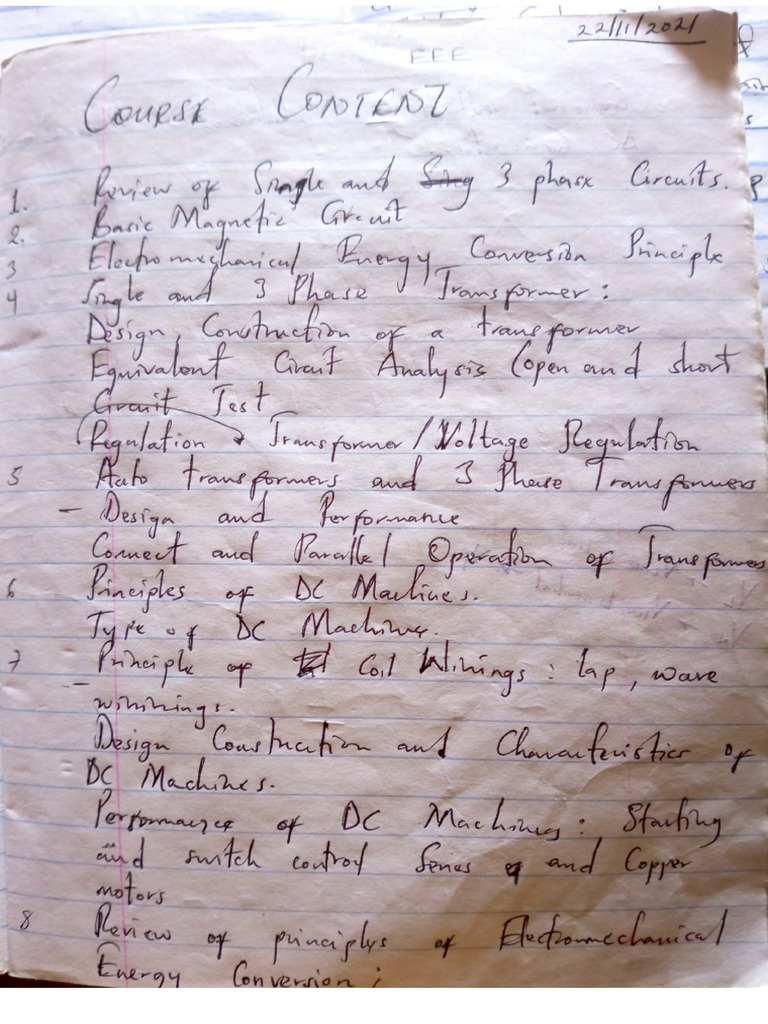 22/11/2021
EEE
COURSE CONTENT
1. Review of Single and 3 phase Circuits.
2. Basic Magnetic Circuit
3 Electromechanical Energy Conversion Principle
4 Single and 3 Phase Transformer:
Design, Construction of a transformer
Equivalent Circuit Analysis (open and short
Circuit Test
Regulation → Transformer/Voltage Regulation
5 Auto transformers and 3 Phase Transformers
- Design and Performance
Connect and Parallel Operation of Transformers
6 Principles of DC Machines.
Type of DC Machines.
7 Principle of Coil Winings: lap, wave
- winnings.
Design Construction and Characteristics of
DC Machines.
Performance of DC Machines: Starting
and switch control Series and Copper
motors
8 Review of principlys of Electromechanical
Energy Conversion;